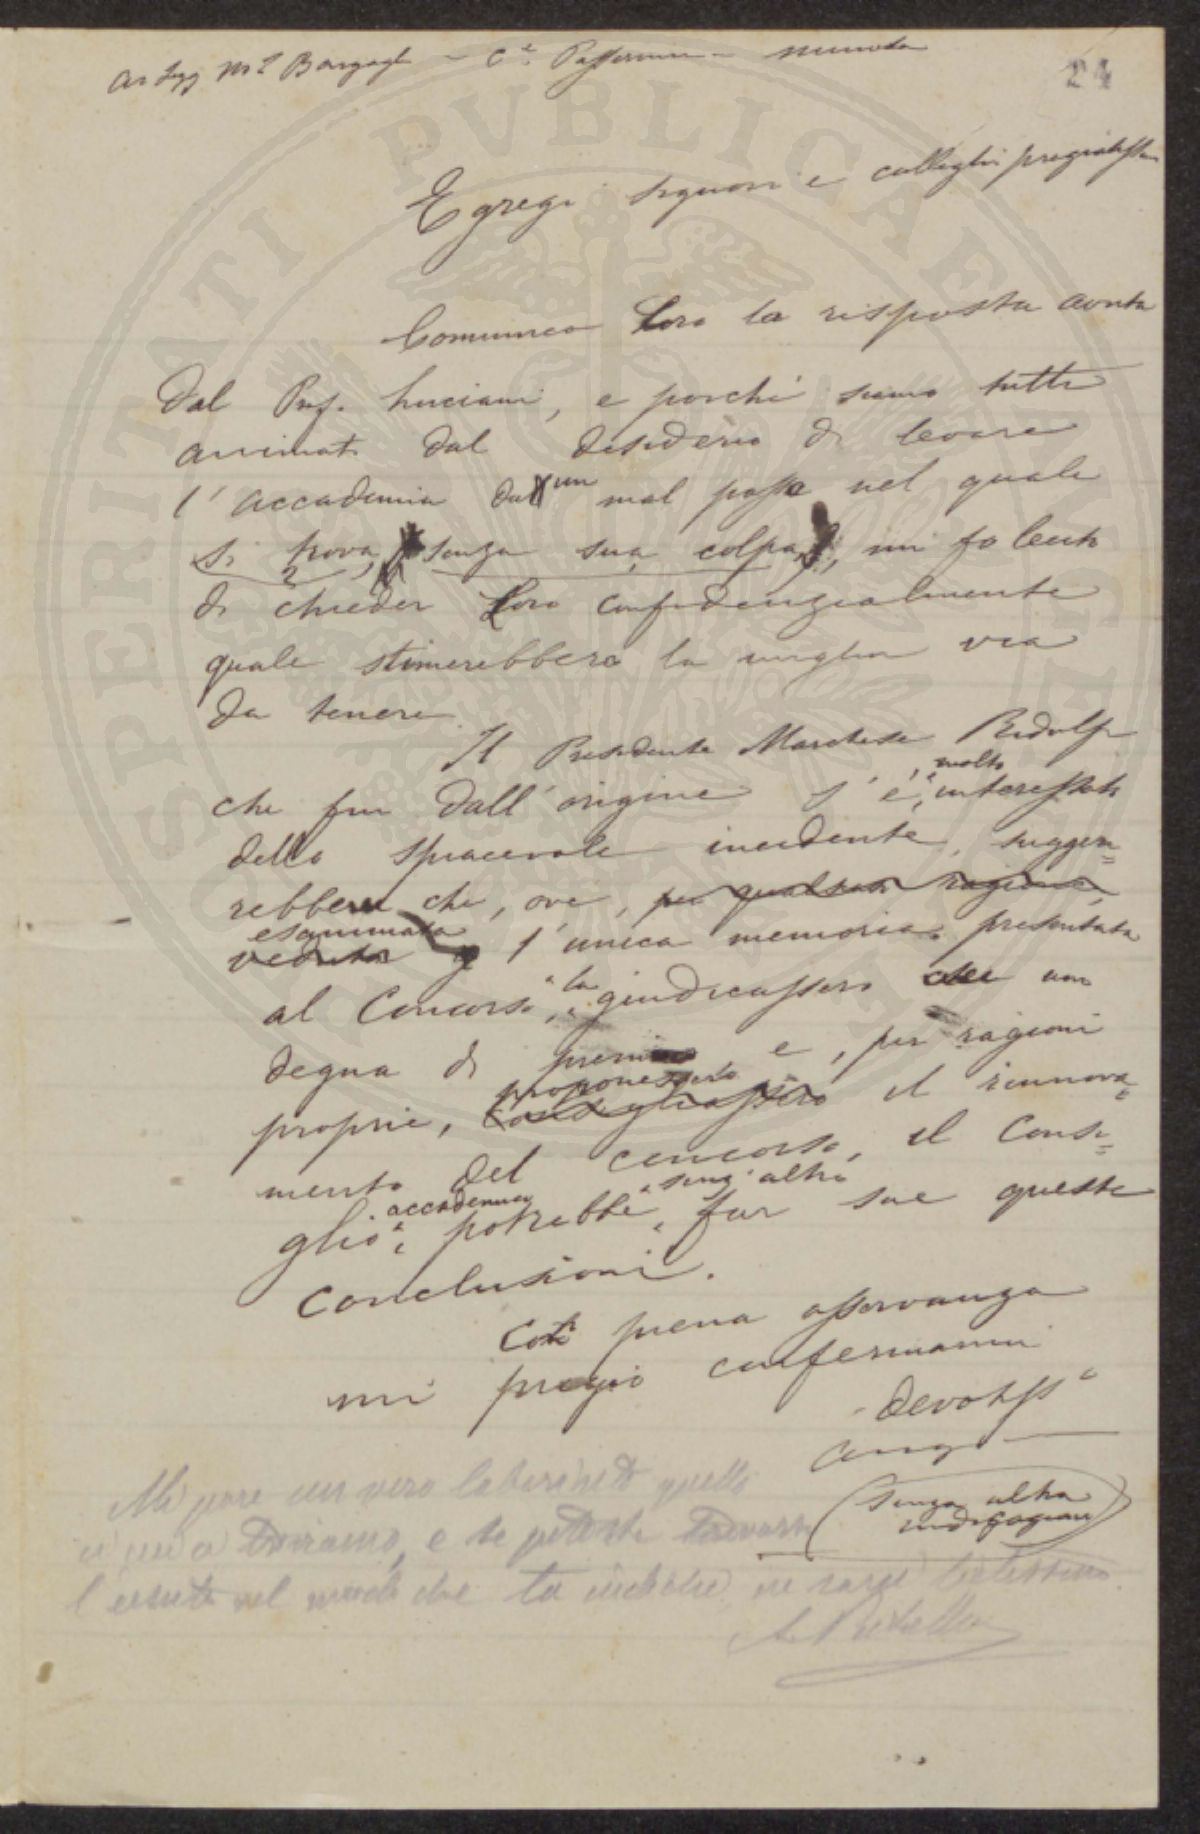 Ai Sigg Mse Bargagli - Ce Passerini - minuta
24
Egregi signori e colleghi pregiatissimi
Comunico Loro la risposta avuta
dal Prof. Luciani, e poiché siamo tutti
animati dal desiderio di levare
l'accademia da un mal passo nel quale
si trova, senza sua colpa, mi fo lecito
di chieder Loro confidenzialmente
quale stimerebbero la miglior via
da tenere
Il Presidente Marchese Ridolfi
che fin dall'origine s'è molto interessato
dello spiacevole incidente, sugge=
rebbe che, ove, per qualsiasi ragione,
esaminata
veduta l'unica memoria presentata
al Concorso, la giudicassero non
degna di premio e, per ragioni
proponessero
proprie, consigliassero il rinnova=
mento del concorso, il Consi=
glio accademico potrebbe senz'altro far sue queste
conclusioni.
Con piena osservanza
mi pregio confermarmi
devotissº
(senza altra
indicazione)
Mi pare un vero laberinto quello
in cui ci troviamo, e se poteste trovare
l'uscita nel modo che tu indichi ne sarei lietissimo.